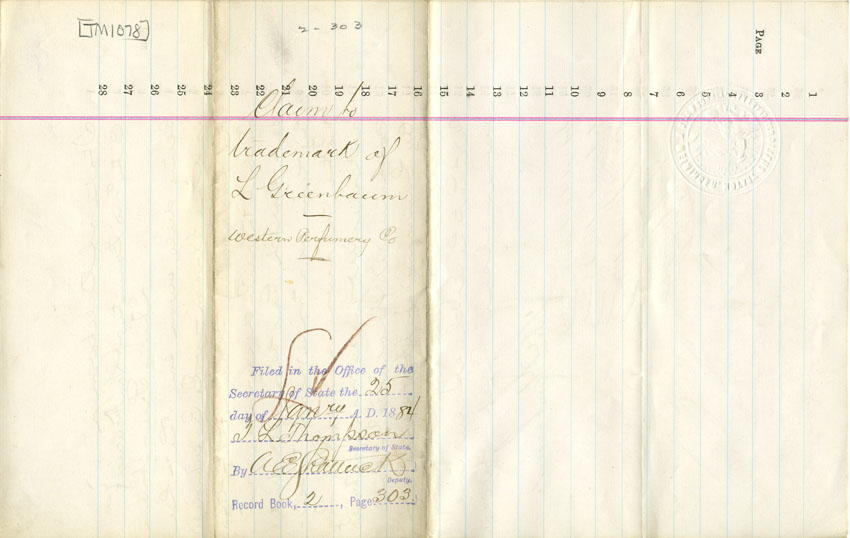 [TM1078]
2-303
PAGE
1 2 3 4 5 6 7 8 9 10 11 12 13 14 15 16 17 18 19 20 21 22 23 24 25 26 27 28
Claim to
trademark of
L Greenbaum
Western Perfumery Co
Filed in the Office of the
Secretary of State the 25
day of Janry A. D. 1884
T L Thompson
Secretary of State.
By
Deputy.
Record Book, 2, Page 303